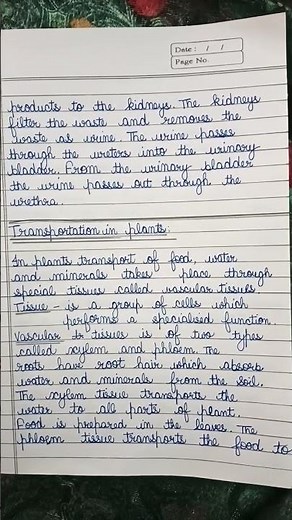 Date : / /
Page No
products to the kidneys. The kidneys
filter the waste and removes the
waste as urine. The urine passes
through the ureters into the urinary
bladder. From the urinary bladder
the urine passes out through the
urethra.
Transportation in plants:
In plants transport of food, water
and minerals takes place through
special tissues called vascular tissues
Tissue - is a group of cells which
performs a specialised function.
Vascular tissues is of two types
called xylem and phloem. The
roots have root hair which absorb
water and minerals from the soil.
The xylem tissue transports the
water to all parts of plant.
Food is prepared in the leaves. The
phloem tissue transports the food to